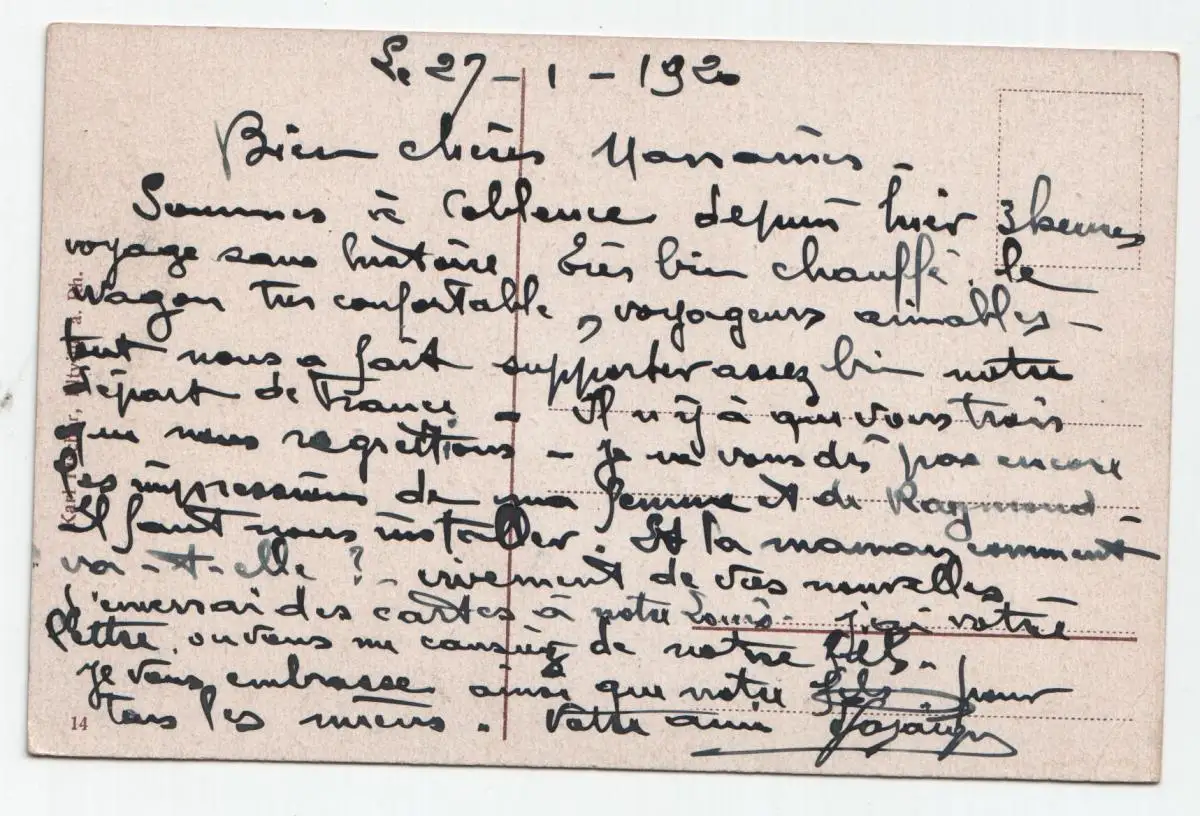 Le 27 - 1 - 1920
Bien chères
Sommes à Coblence depuis hier 3 heures
voyage sans histoire très bien chauffé, le
wagon très confortable, voyageurs aimables -
tout nous a fait supporter assez bien notre
départ de France - Il n'y à que vous trois
que nous regrettions - Je ne vous dis pas encore
les impressions de ma femme et de Raymond
Il faut nous installer. Et la maman comment
va-t-elle ? - vivement de vos nouvelles
J'enverrai des cartes à notre Louis. j'ai votre
lettre, ou vous me causiez de notre fils.
je vous embrasse ainsi que notre fils, pour
tous les miens. Votre ami
14